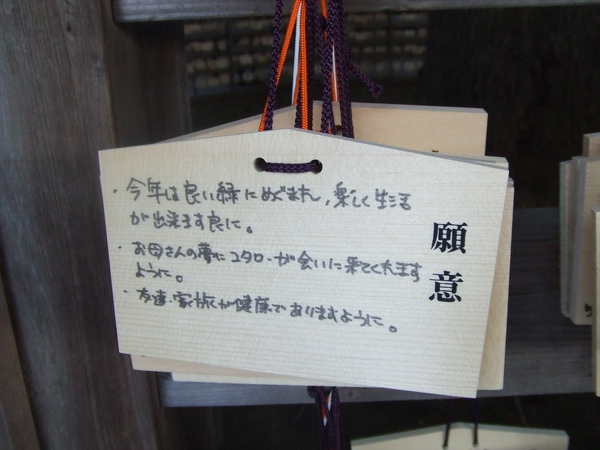 願意
・今年は良い縁にめぐまれ、楽しく生活
が出来ます良に。
・お母さんの夢にコタローが会いに来てくれます
ように。
・友達・家族が健康でありますように。